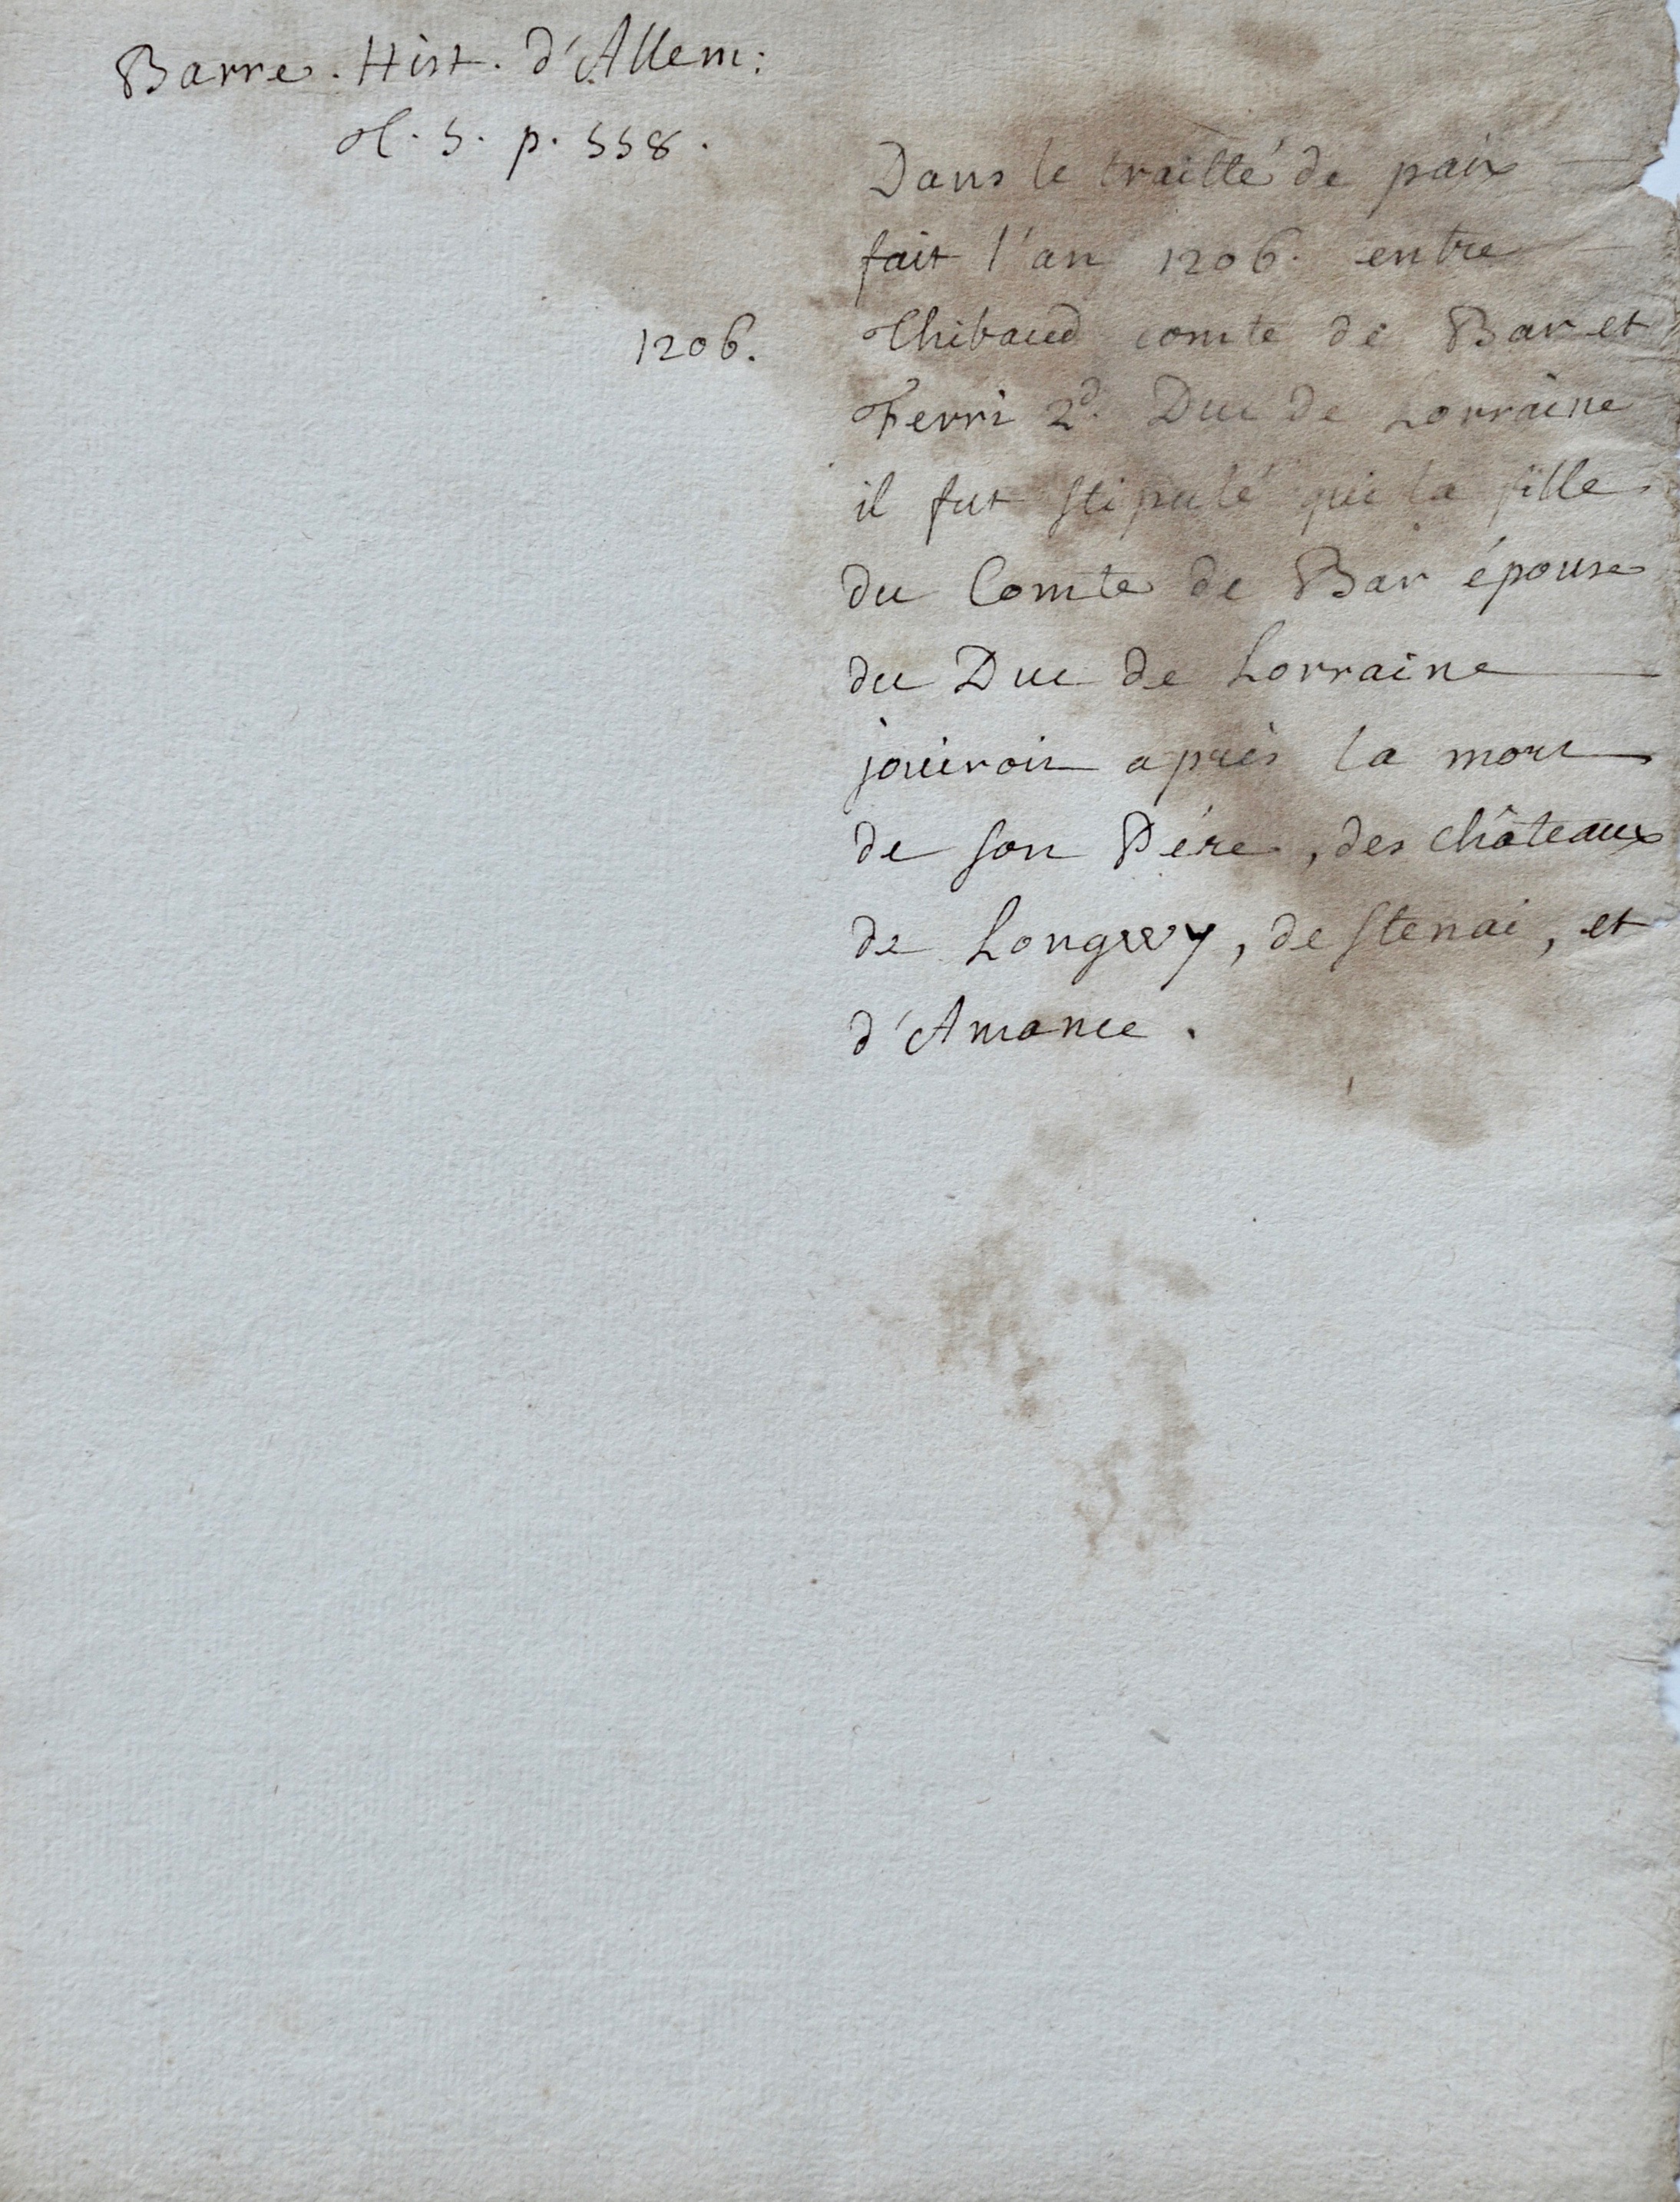 Barre. Hist. d'Allem:
t. 5. p. 558.
Dans le traitté de paix
fait l'an 1206. entre
1206.
Thibaud comte de Bar et
Ferri 2d. Duc de Lorraine
il fut stipulé que la fille
du Comte de Bar épouse
du Duc de Lorraine
jouiroit après la mort
de son Pére, des châteaux
de Longwy, de Stenai, et
d'Amance.